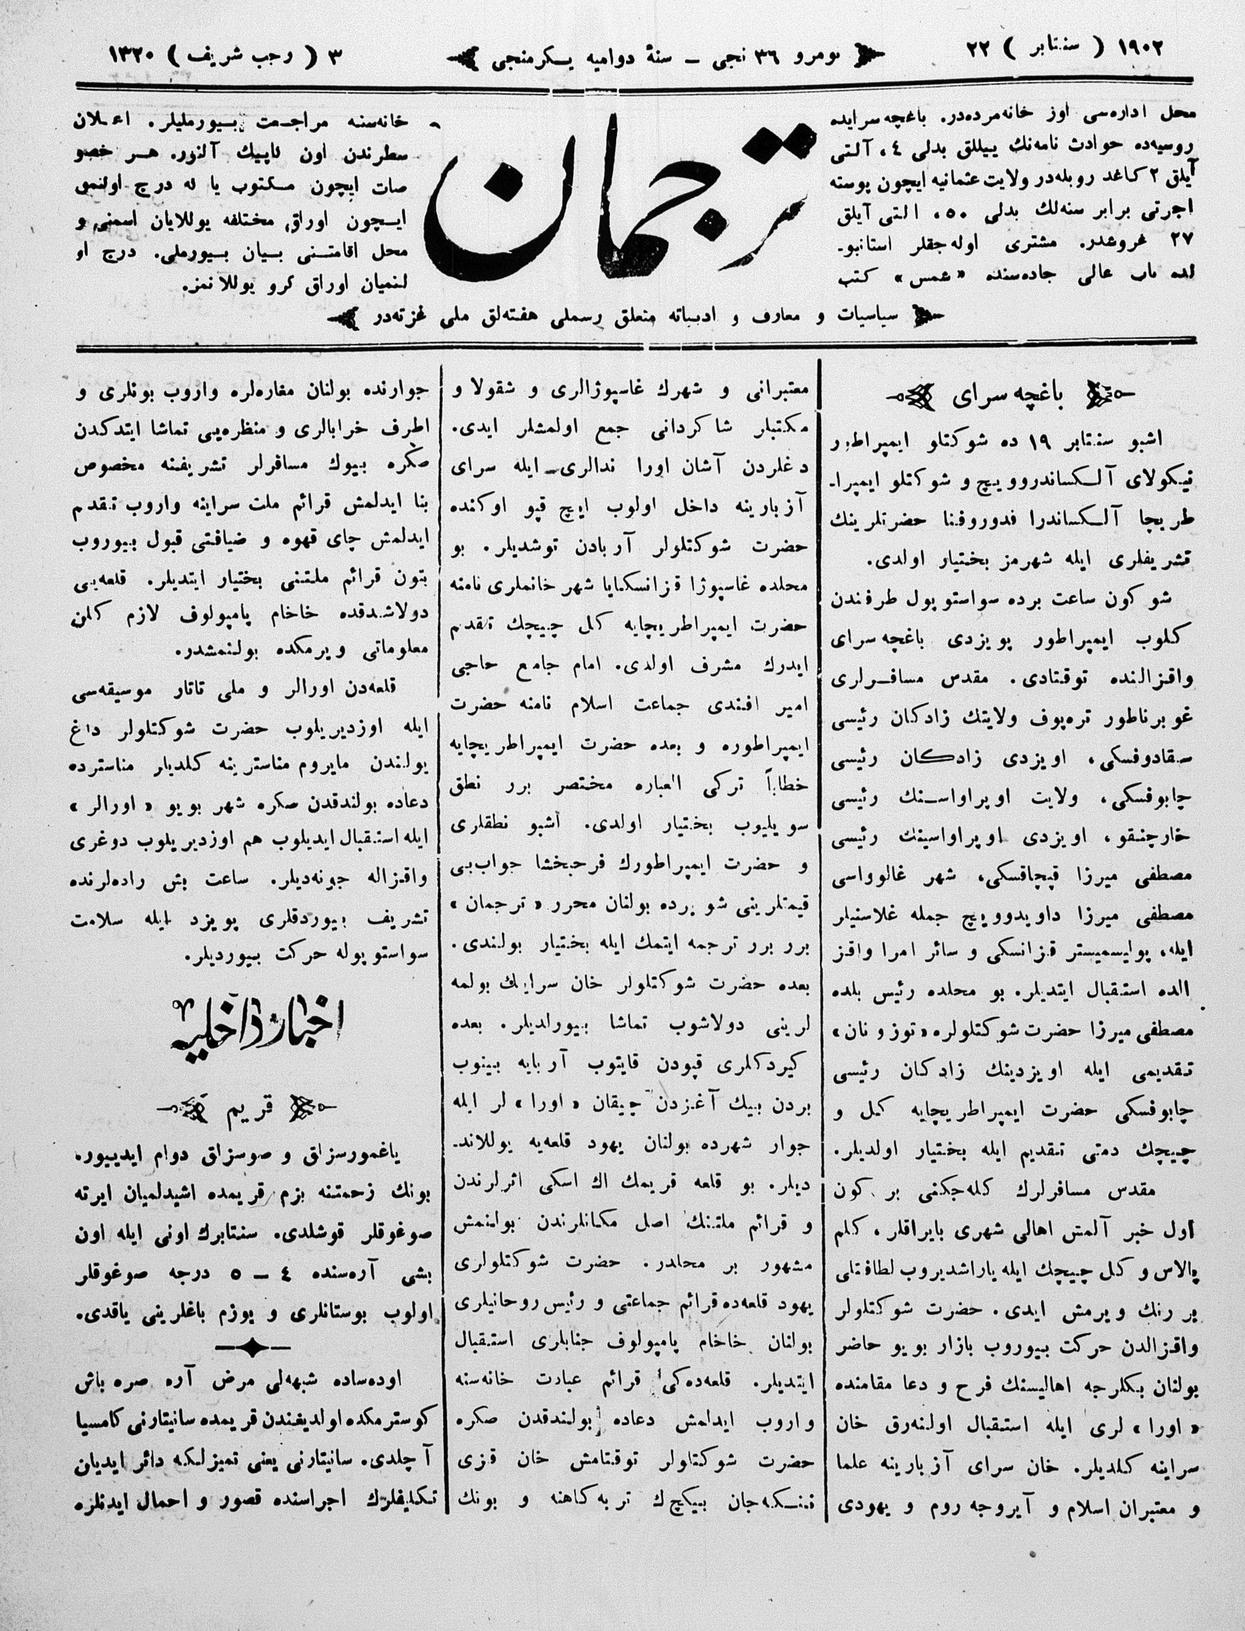 ١٩٠٢ ( سنتابر ) ٢٢
نومرو ٣٦ نجی ـ سنهٔ دوامیه یکرمنجی
٣ ( رجب شریف ) ١٣٢٠
محل اداره‌سی اوز خانه‌مزده‌در. باغچه سرایده
روسیه‌ده حوادث نامه‌نك ییللق بدلی ٤، آلتی
آیلق ٢ كاغد روبله‌در ولایت عثمانیه ایچون پوسته
اجرتی برابر سنه‌لك بدلی ٥٠، التی آیلق
٢٧ غروشدر. مشتری اوله‌جقلر استانبو-
لده باب عالی جاده‌سنده «شمس» كتب
ترجمان
خانه‌سنه مراجعت بیورملیلر. اعلان
سطرندن اون كاپیك آلنور. هر خصو
صات ایچون مكتوب یا له درج اولنمق
ایچون اوراق مختلفه یوللایان اسمنی و
محل اقامتنی بیان بیورملی. درج او
لنمیان اوراق كرو یوللانمز.
سیاسیات و معارف و ادبیاته متعلق رسملی هفته‌لق ملی غزته‌در
باغچه سرای
اشبو سنتابر ١٩ ده شوكتلو ایمپراطور
نیكولای آلكساندروویچ و شوكتلو ایمپرا-
طریچا آلكساندرا فدوروفنا حضرتلرینك
تشریفلری ایله شهرمز بختیار اولدی.
شو كون ساعت برده سواستوپول طرفندن
كلوب ایمپراطور پویزدی باغچه سرای
واقزالنده توقتادی. مقدس مسافرلری
غوبرناطور تره‌پوف ولایتك زادكان رئیسی
سقادوفسكی، اویزدی زادكان رئیسی
چابوفسكی، ولایت اوپراواسنك رئیسی
خارچنقو، اویزدی اوپراواسینك رئیسی
مصطفی میرزا قپچاقسكی، شهر غالوواسی
مصطفی میرزا داویدوویچ جمله غلاسنیلر
ایله، پولیسمیستر قزانسكی و سائر امرا واقز
الده استقبال ایتدیلر. بو محلده رئیس بلده
مصطفی میرزا حضرت شوكتلولره «توز و نان»
تقدیمی ایله اویزدینك زادكان رئیسی
چابوفسكی حضرت ایمپراطریچایه كل و
چیچك دمتی تقدیم ایله بختیار اولدیلر.
مقدس مسافرلرك كله‌جكنی بر كون
اول خبر آلمش اهالی شهری بایراقلر، كلم
پالاس و كل چیچك ایله یاراشدیروب لطافتلی
بر رنك ویرمش ایدی. حضرت شوكتلولر
واقزالدن حركت بیوروب بازار بویو حاضر
بولنان بكلرجه اهالیسنك فرح و دعا مقامنده
«اورا» لری ایله استقبال اولنه‌رق خان
سراینه كلدیلر. خان سرای آزبارینه علما
و معتبران اسلام و آیروجه روم و یهودی
معتبرانی و شهرك غاسپوژالری و شقولا و
مكتبلر شاكردانی جمع اولمشلر ایدی.
دغلردن آشان اورا ندالری ایله سرای
آزبارینه داخل اولوب ایچ قپو اوكنده
حضرت شوكتلولر آربادن توشدیلر. بو
محلده غاسپوژا قزانسكایا شهر خانملری نامنه
حضرت ایمپراطریچایه كل چیچك تقدم
ایدرك مشرف اولدی. امام جامع حاجی
امیر افندی جماعت اسلام نامنه حضرت
ایمپراطوره و بعده حضرت ایمپراطریچایه
خطاباً تركی العباره مختصر برر نطق
سویلیوب بختیار اولدی. اشبو نطقلری
و حضرت ایمپراطورك فرحبخشا جواب‌بی
قیمتلرینی شویرده بولنان محرر «ترجمان»
برر برر ترجمه ایتمك ایله بختیار بولندی.
بعده حضرت شوكتلولر خان سراینك بولمه
لرینی دولاشوب تماشا بیورلدیلر. بعده
كیردكلری قپودن قایتوب آربایه بینوب
بردن بیك آغزدن چیقان «اورا» لر ایله
جوار شهرده بولنان یهود قلعه‌یه یوللاند-
دیلر. بو قلعه قریمك اك اسكی اثرلرندن
و قرائم ملتنك اصل مكانلرندن بولنمش
مشهور بر محلدر. حضرت شوكتلولری
یهود قلعه‌ده قرائم جماعتی و رئیس روحانیلری
بولنان خاخام پامپولوف جنابلری استقبال
ایتدیلر. قلعه‌ده‌كی قرائم عبادت خانه‌سنه
واروب ایدلمش دعاده بولندقدن صكره
حضرت شوكتلولر توقتامش خان قزی
ننكه‌جان بیكچ‌ك تربه‌كاهنه و بونك
جوارنده بولنان مغاره‌لره واروب بونلری و
اطرف خرابالری و منظره‌یی تماشا ایتدكدن
صكره بیوك مسافرلر تشریفنه مخصوص
بنا ایدلمش قرائم ملت سراینه واروب تقدم
ایدلمش چای قهوه و ضیافتی قبول بیوروب
بتون قرائم ملتنی بختیار ایتدیلر. قلعه‌یی
دولاشدقده خاخام پامپولوف لازم كلن
معلوماتی ویرمكده بولنمشدر.
قلعه‌دن اورالر و ملی تاتار موسیقه‌سی
ایله اوزدیریلوب حضرت شوكتلولر داغ
یولندن مایروم مناستربنه كلدیلر مناسترده
دعاده بولندقدن صكره شهر بویو «اورالر»
ایله استقبال ایدیلوب هم اوزدیریلوب دوغری
واقزاله جونه‌دیلر. ساعت بش راده‌لرنده
تشریف بیوردقلری پویزد ایله سلامت
سواستوپوله حركت بیوردیلر.
اخبار داخلیه
قریم
یاغمورسزلق و صوسزلق دوام ایدییور.
بونك زحمتنه بزم قریمده اشیدلمیان ایرته
صوغوقلر قوشلدی. سنتابرك اونی ایله اون
بشی آره‌سنده ٤ – ٥ درجه صوغوقلر
اولوب بوستانلری و یوزم باغلرینی یاقدی.
اوده‌ساده شبهه‌لی مرض آره صره باش
كوسترمكده اولدیغندن قریمده سانیتارنی كامسیا
آچلدی. سانیتارنی یعنی تمیزلكه دائر ایدیان
تكلیفلرك اجراسنده قصور و احمال ایدنلره